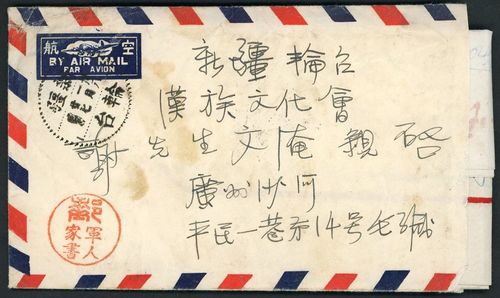 航空
BY AIR MAIL
PAR AVION
輪台
新疆輪台
漢族文化會
謝先生文淹親啓
廣州沙河
平民一巷第14号
軍人
家書